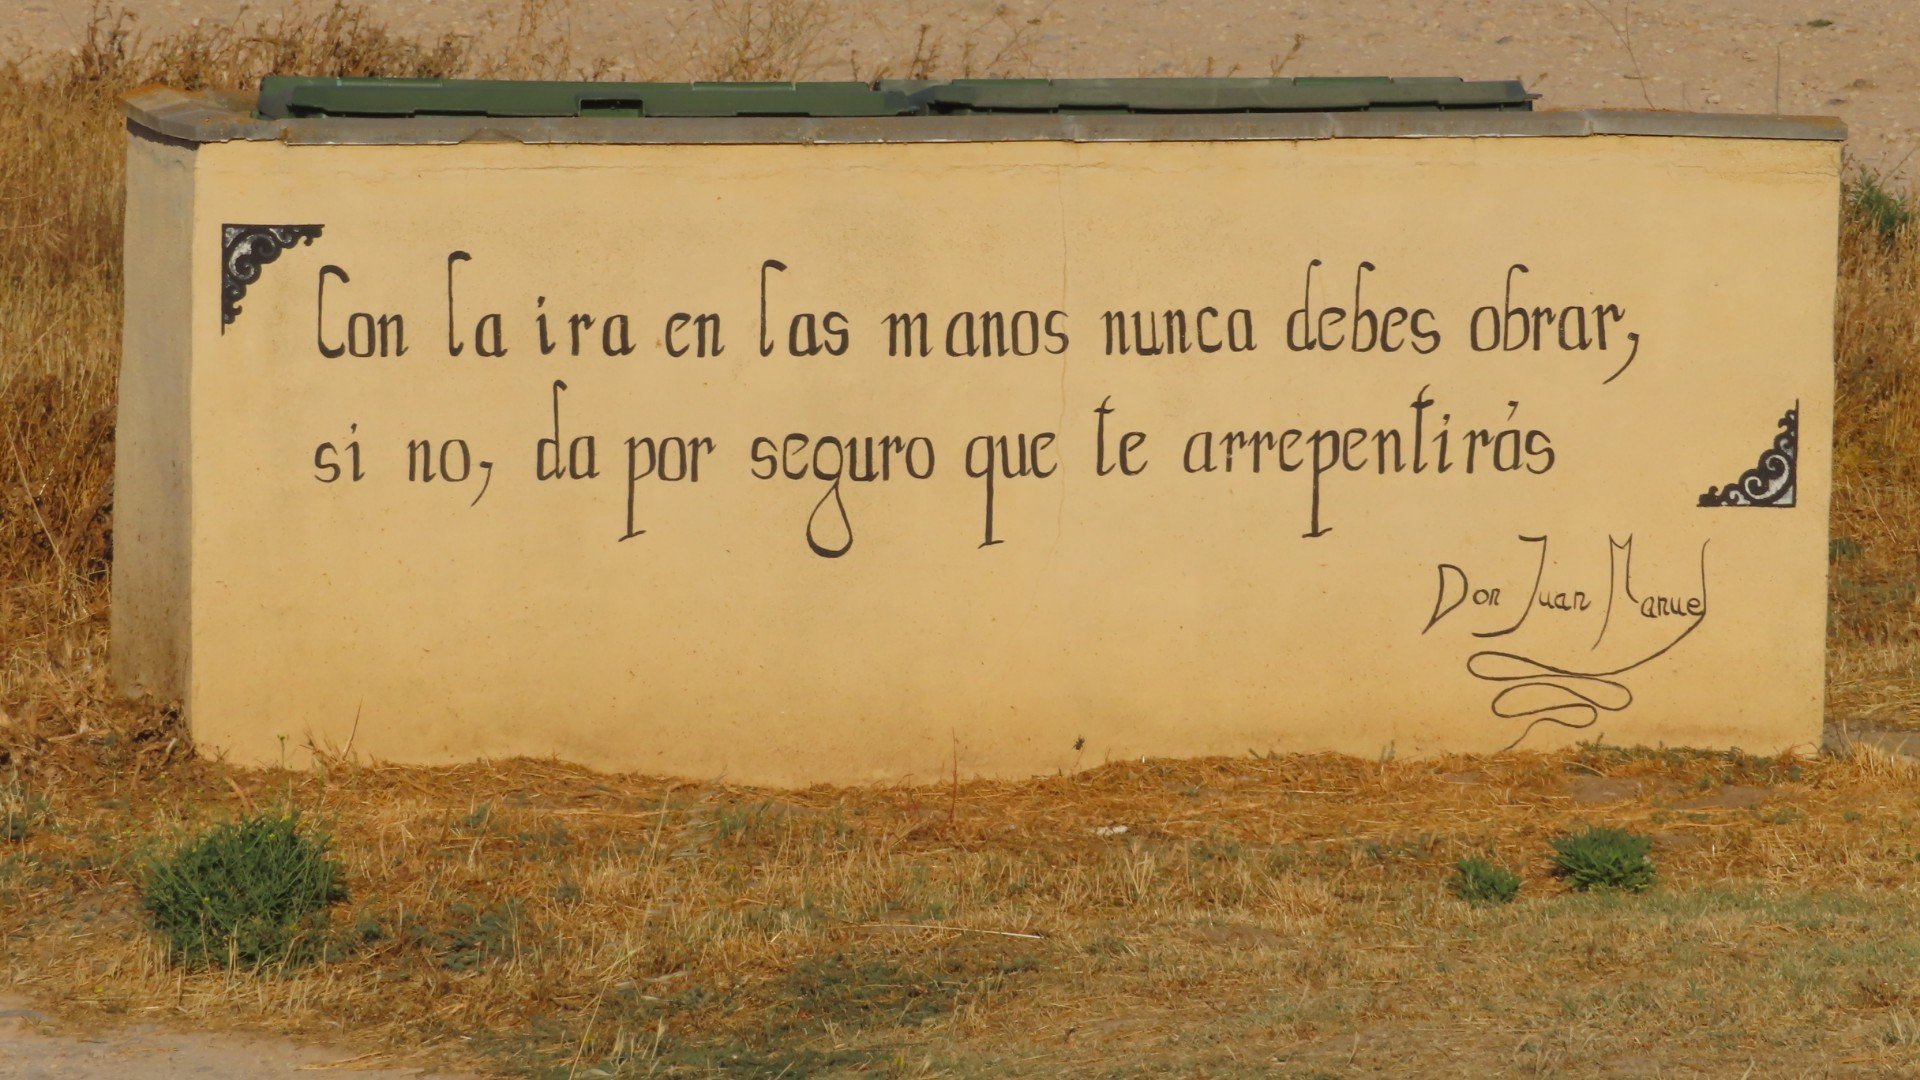 Con la ira en las manos nunca debes obrar,
si no, da por seguro que te arrepentirás
Don Juan Manuel